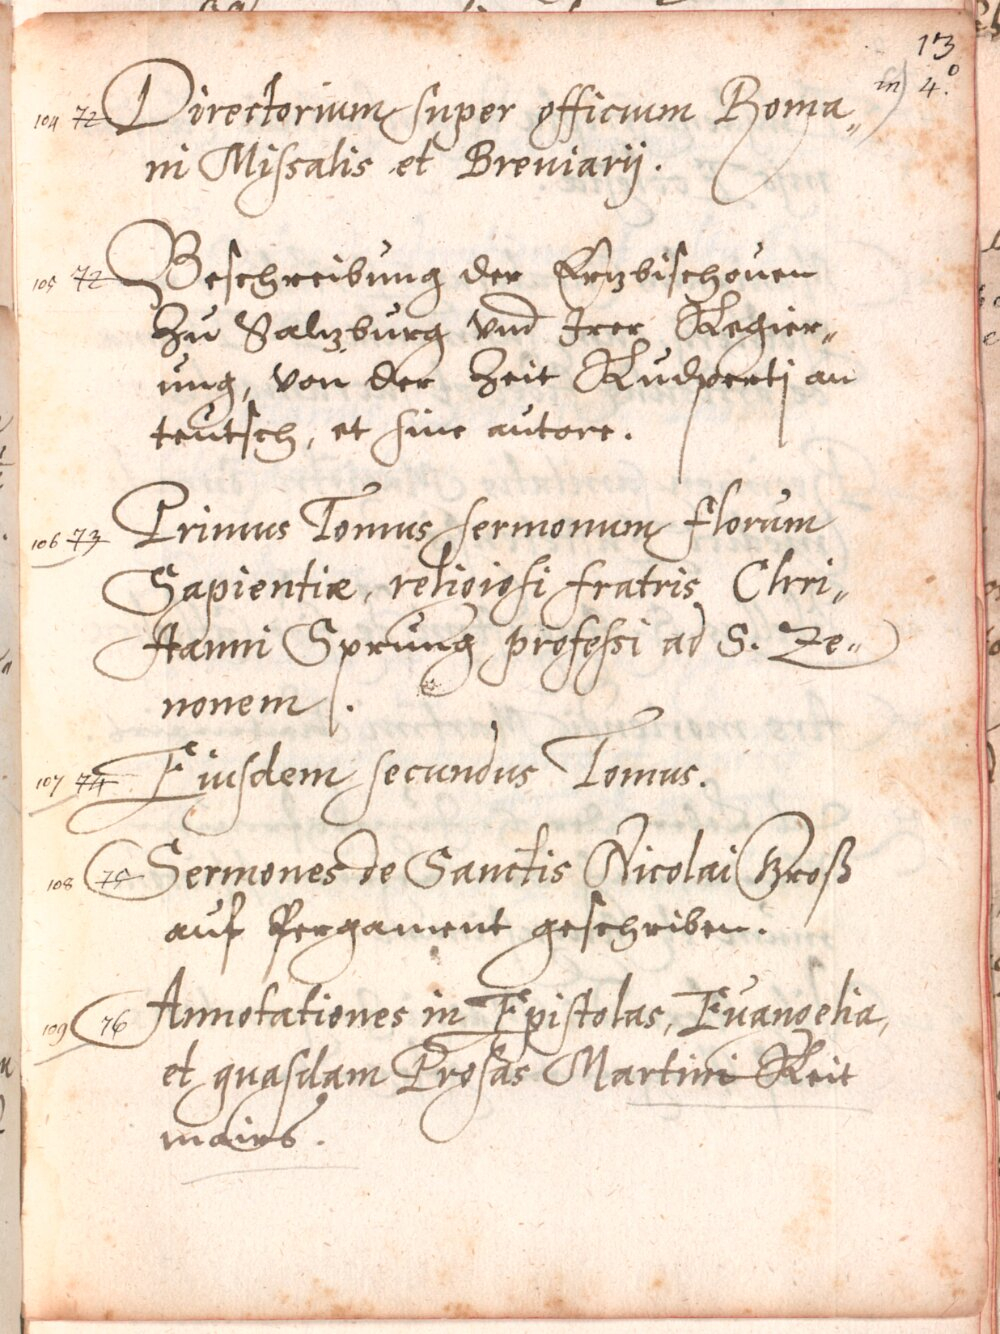 13
in 4.o
104 72 Directorium super officium Roma„
ni Missalis et Breviarij.
105 72 Beschreibung der Ertzbischouen
Zu Saltzburg Vnd Irer Regier„
ung, von der Zeit Rudperti an
teutsch, et sine autore.
106 73 Primus Tomus sermonum florum
Sapientiæ, religiosi fratris Chri„
stanni Sprung professi ad S. Ze„
nonem.
107 74 Eiusdem secundus Tomus.
108 75 Sermones de Sanctis Nicolai Groß
auf Pergament geschriben.
109 76 Annotationes in Epistolas, Euangelia,
et quasdam Prosas Martini Reit
mairs.